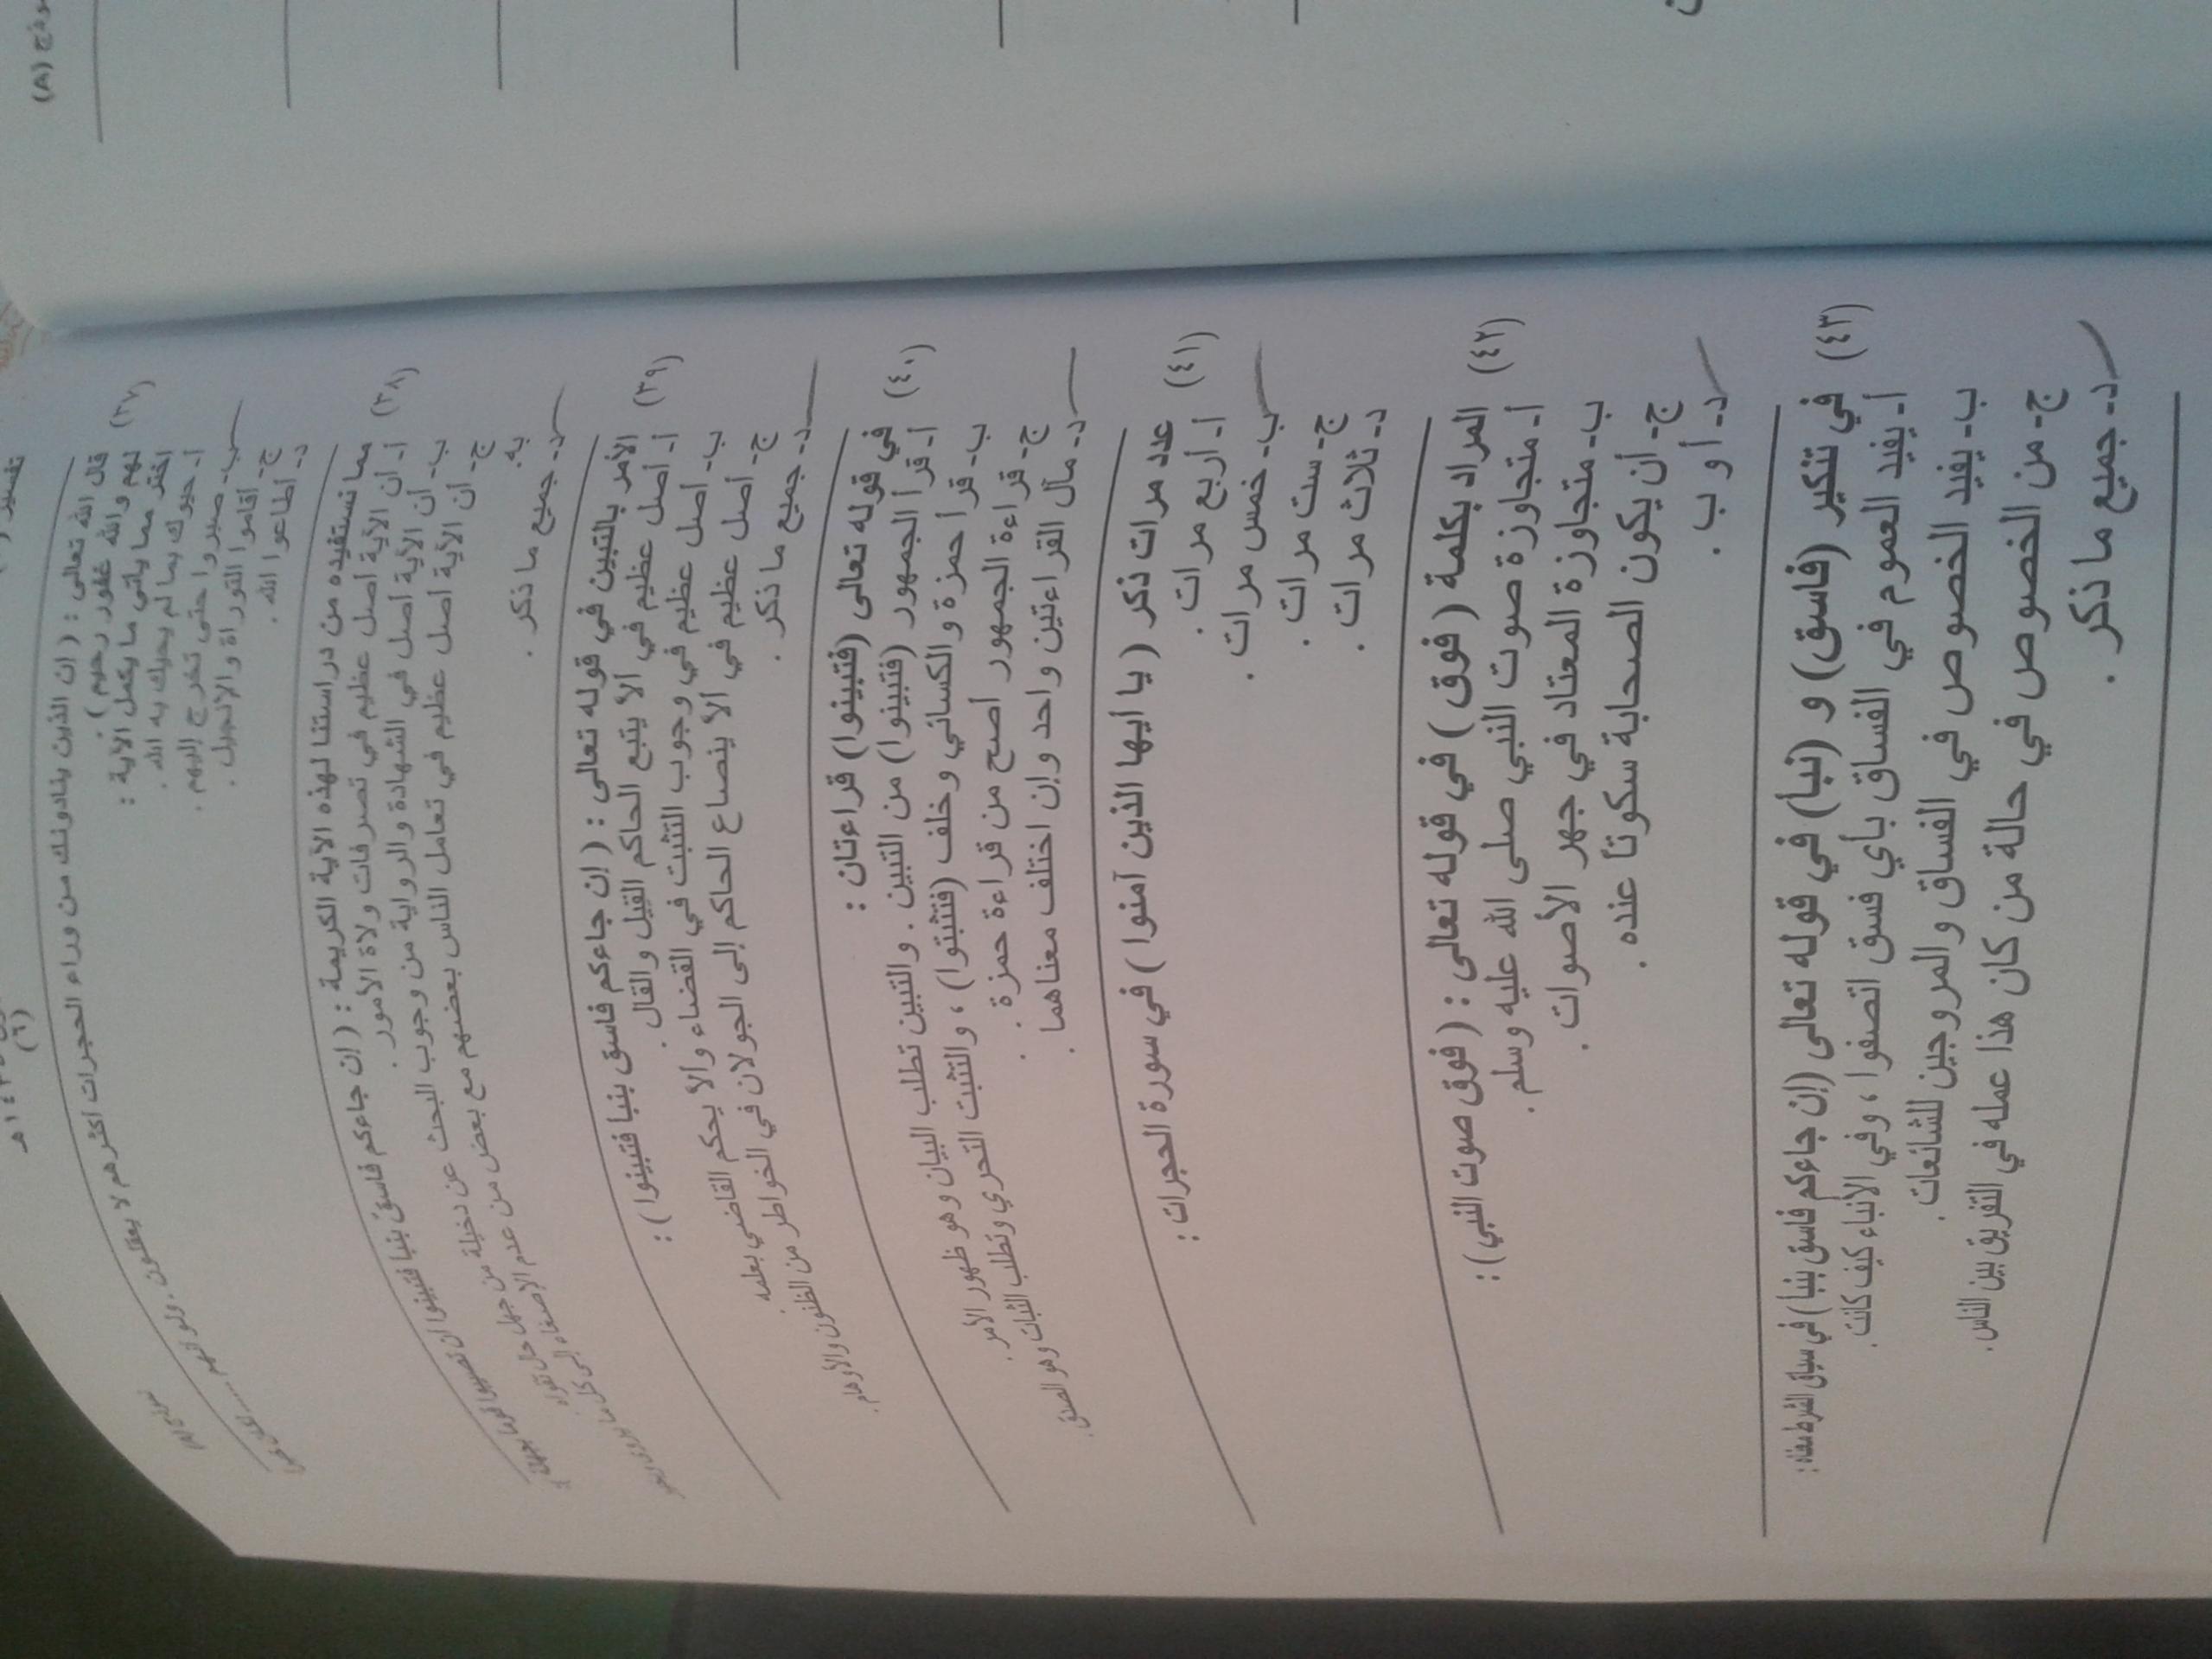 (A)
تفسير
(٦)
(٣٧) قال الله تعالى : ( إن الذين ينادونك من وراء الحجرات أكثرهم لا يعقلون . ولو أنهم ......
لهم والله غفور رحيم )
اختر مما يأتي ما يكمل الآية :
أ- حيوك بما لم يحيك به الله .
ب- صبروا حتى تخرج إليهم .
ج- أقاموا التوراة والإنجيل .
د- أطاعوا الله .
(٣٨) مما نستفيده من دراستنا لهذه الآية الكريمة : ( إن جاءكم فاسق بنبأ فتبينوا أن تصيبوا قوما بجهالة
أ- أن الآية أصل عظيم في تصرفات ولاة الأمور .
ب- أن الآية أصل في الشهادة والرواية من وجوب البحث عن دخيلة من جهل حال تقواه
ج- أن الآية أصل عظيم في تعامل الناس بعضهم مع بعض من عدم الإصغاء إلى كل ما يروى
به .
د- جميع ما ذكر .
(٣٩) الأمر بالتبين في قوله تعالى : ( إن جاءكم فاسق بنبأ فتبينوا ) :
أ- أصل عظيم في ألا يتبع الحاكم القيل والقال .
ب- أصل عظيم في وجوب التثبت في القضاء وألا يحكم القاضي بعلمه
ج- أصل عظيم في ألا ينصاع الحاكم إلى الجولان في الخواطر من الظنون والأوهام .
د- جميع ما ذكر .
(٤٠) في قوله تعالى (فتبينوا) قراءتان :
أ- قرأ الجمهور (فتبينوا) من التبين . والتبين تطلب البيان وهو ظهور الأمر .
ب- قرأ حمزة والكسائي وخلف (فتثبتوا) ، والتثبت التحري وتطلب الثبات وهو الصدق .
ج- قراءة الجمهور أصح من قراءة حمزة .
د- مآل القراءتين واحد وإن اختلف معناهما .
(٤١) عدد مرات ذكر ( يا أيها الذين آمنوا ) في سورة الحجرات :
أ- أربع مرات .
ب- خمس مرات .
ج- ست مرات .
د- ثلاث مرات .
(٤٢) المراد بكلمة ( فوق ) في قوله تعالى : ( فوق صوت النبي ) :
أ- متجاوزة صوت النبي صلى الله عليه وسلم .
ب- متجاوزة المعتاد في جهر الأصوات .
ج- أن يكون الصحابة سكوتاً عنده .
د- أ و ب .
(٤٣) في تنكير (فاسق) و (نبأ) في قوله تعالى (إن جاءكم فاسق بنبأ) في سياق الشرط مفاده :
أ- يفيد العموم في الفساق بأي فسق اتصفوا ، وفي الأنباء كيف كانت .
ب- يفيد الخصوص في الفساق والمروجين للشائعات .
ج- من الخصوص في حالة من كان هذا عمله في التفريق بين الناس .
د- جميع ما ذكر .